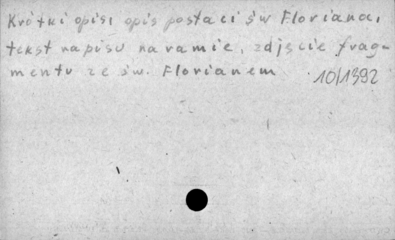 Krótki opis: opis postaci św Floriana,
tekst napisu na ramie, zdjęcie frag-
mentu ze św. Florianem
10/1392